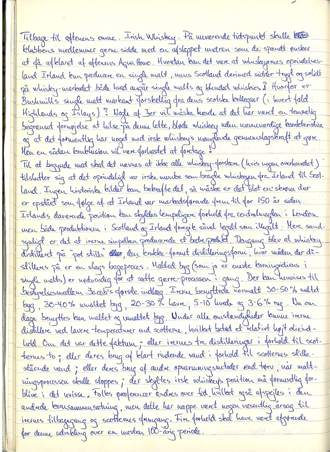 Tilbage til aftenens emne. Irish Whiskey. På nuværende tidspunkt skulle
klubbens medlemmer gerne sidde med en afslappet undren som de spændt ønsker
at få afklaret af aftenens Aqua Howe. Hvordan kan det være at whiskeyens oprindelses-
land Irland kun producere en single malt, mens Scotland derimod sidder trygt og solidt
på whisky-markedet både hvad angår single malts og blended whiskies? Hvorfor er
Bushmills single malt markant forskellig fra dens scotske kollegaer (i hvert fald
Highlands og Islays)? Nogle af Jer vil måske hævde at det har været en temmelig
begrænset fornøjelse at hilse på denne lette, bløde whiskey uden nævneværdig karakteristika
og at det formentlig har noget med irsk whiskeys manglende gennemslagskraft at gøre.
Men en sådan konklusion vil være forhastet at foretage!
Til at begynde med skal det nævnes at ikke alle whisky-forskere (hvis nogen overhovedet)
tilslutter sig at det oprindeligt var irske munke som bragte whiskyen fra Irland til Scot-
land. Ingen historiske kilder kan bekræfte det, så måske er det blot en skrøne der
er opstået som følge af at Irland var markedsførende frem til for 150 år siden.
Irlands daværende position kan skyldes lempeligere forhold fra centralmagten i London
men både produktionen i Scotland og Irland foregik såvel legalt som illegalt. Mere sand-
synligt er det at irerne simpelthen producerede et bedre produkt. Dengang blev al whiskey
distilleret på "pot stills" den kendte format destilleringsform, hvor måden der di-
stilleres på er en slags bagproces. Maltet byg (som jo er eneste korningrediens i
single malts) er nødvendig for at sætte gærre-processen i gang. Der kan henvises til
beskyldsen Jacob's første indlæg. Irerne benyttede normalt 30-50 % maltet
byg, 30-40 % umaltet byg, 20-30 % havre, 5-10 hvede og 3-6 % rug. Nu om
dage benyttes kun maltet og umaltet byg. Under alle omstændigheder kunne irerne
distillere ved lavere temperaturer end scotterne, hvilket betød et relativt højt olieind-
hold. Om det var dette faktum; eller irernes tre distilleringer i forhold til scot-
ternes to; eller deres brug af klart rindende vand i forhold til scotternes stille-
stående vand; eller deres brug af andre opvarmningsmetoder end tørv, når malt-
ningsprocessen skulle stoppes; der skyldtes irsk whiskeys position må formentlig for-
blive i det uvisse. Folks præferencer ændres over tid, hvilket også afspejles i den
ændrede kornsammensætning, men dette har næppe været nogen væsentlig årsag til
irernes tilbagegang og scotternes fremgang. Fire forhold skal have været afgørende
for denne udvikling over en moden 100-årig periode.